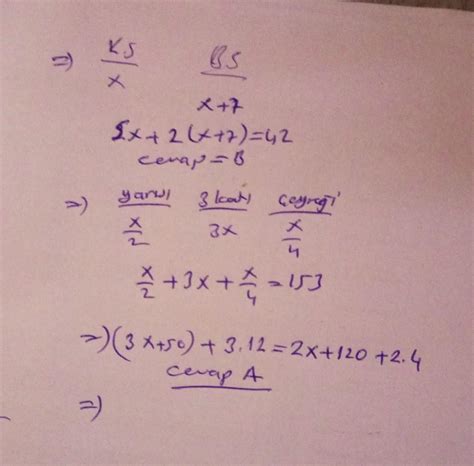 ⇒) KS BS
x
x+7
2x+2(x+7)=42
cevap=B
⇒) yarısı 3 katı çeyreği
x/2 3x x/4
x/2+3x+x/4=153
⇒)(3x+50)+3.12=2x+120+2.4
cevap A
⇒)